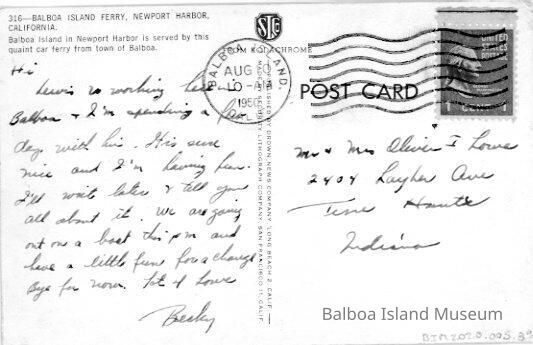 316—BALBOA ISLAND FERRY, NEWPORT HARBOR,
CALIFORNIA.
Balboa Island in Newport Harbor is served by this
quaint car ferry from town of Balboa.
FROM KODACHROME
BALBOA ISLAND.
AUG
10-AM
1950
CALIF.
POST CARD
Hi
Lewis is working here in
Balboa & I'm spending a few
days with him. It's sure
nice and I'm having fun.
I'll write later & tell you
all about it. We are going
out on a boat this pm and
have a little fun for a change
Bye for now. Lot of Love
Becky
PUBLISHED BY BROWN NEWS COMPANY, LONG BEACH 2, CALIF.
LITHOGRAPH COMPANY, SAN FRANCISCO 11, CALIF.
Mr & Mrs Oliver I Lowe
2404 Layher Ave
Terre Haute
Indiana
Balboa Island Museum